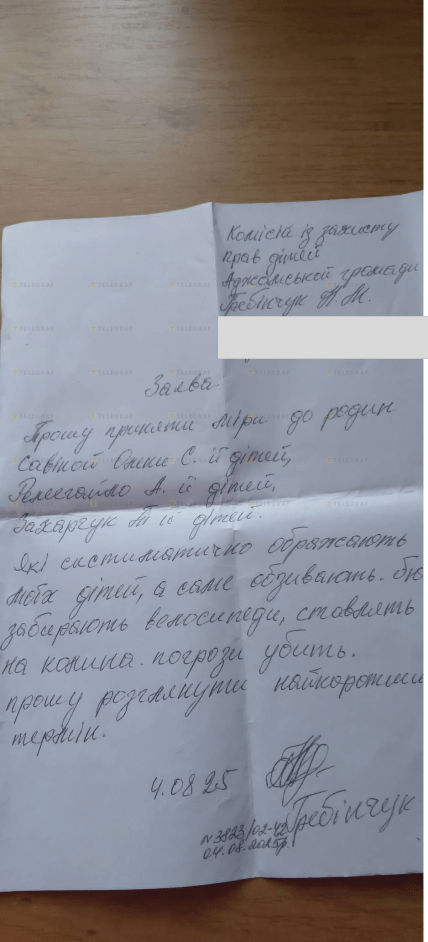 Комісія із захисту
прав дітей
громади
Гребінчук Н.М.
Заява
Прошу приняти міри до родин
Савіной С. її дітей,
А. її дітей,
Захарчук Т її дітей.
Які систиматично ображають
моїх дітей, а саме обзивають. бю
забирають велосипеди, ставлять
на коліна. погрози убить.
прошу розглянути
термін.
4.08 25
Гребінчук
N 3823/02-42
04.08.2025р.